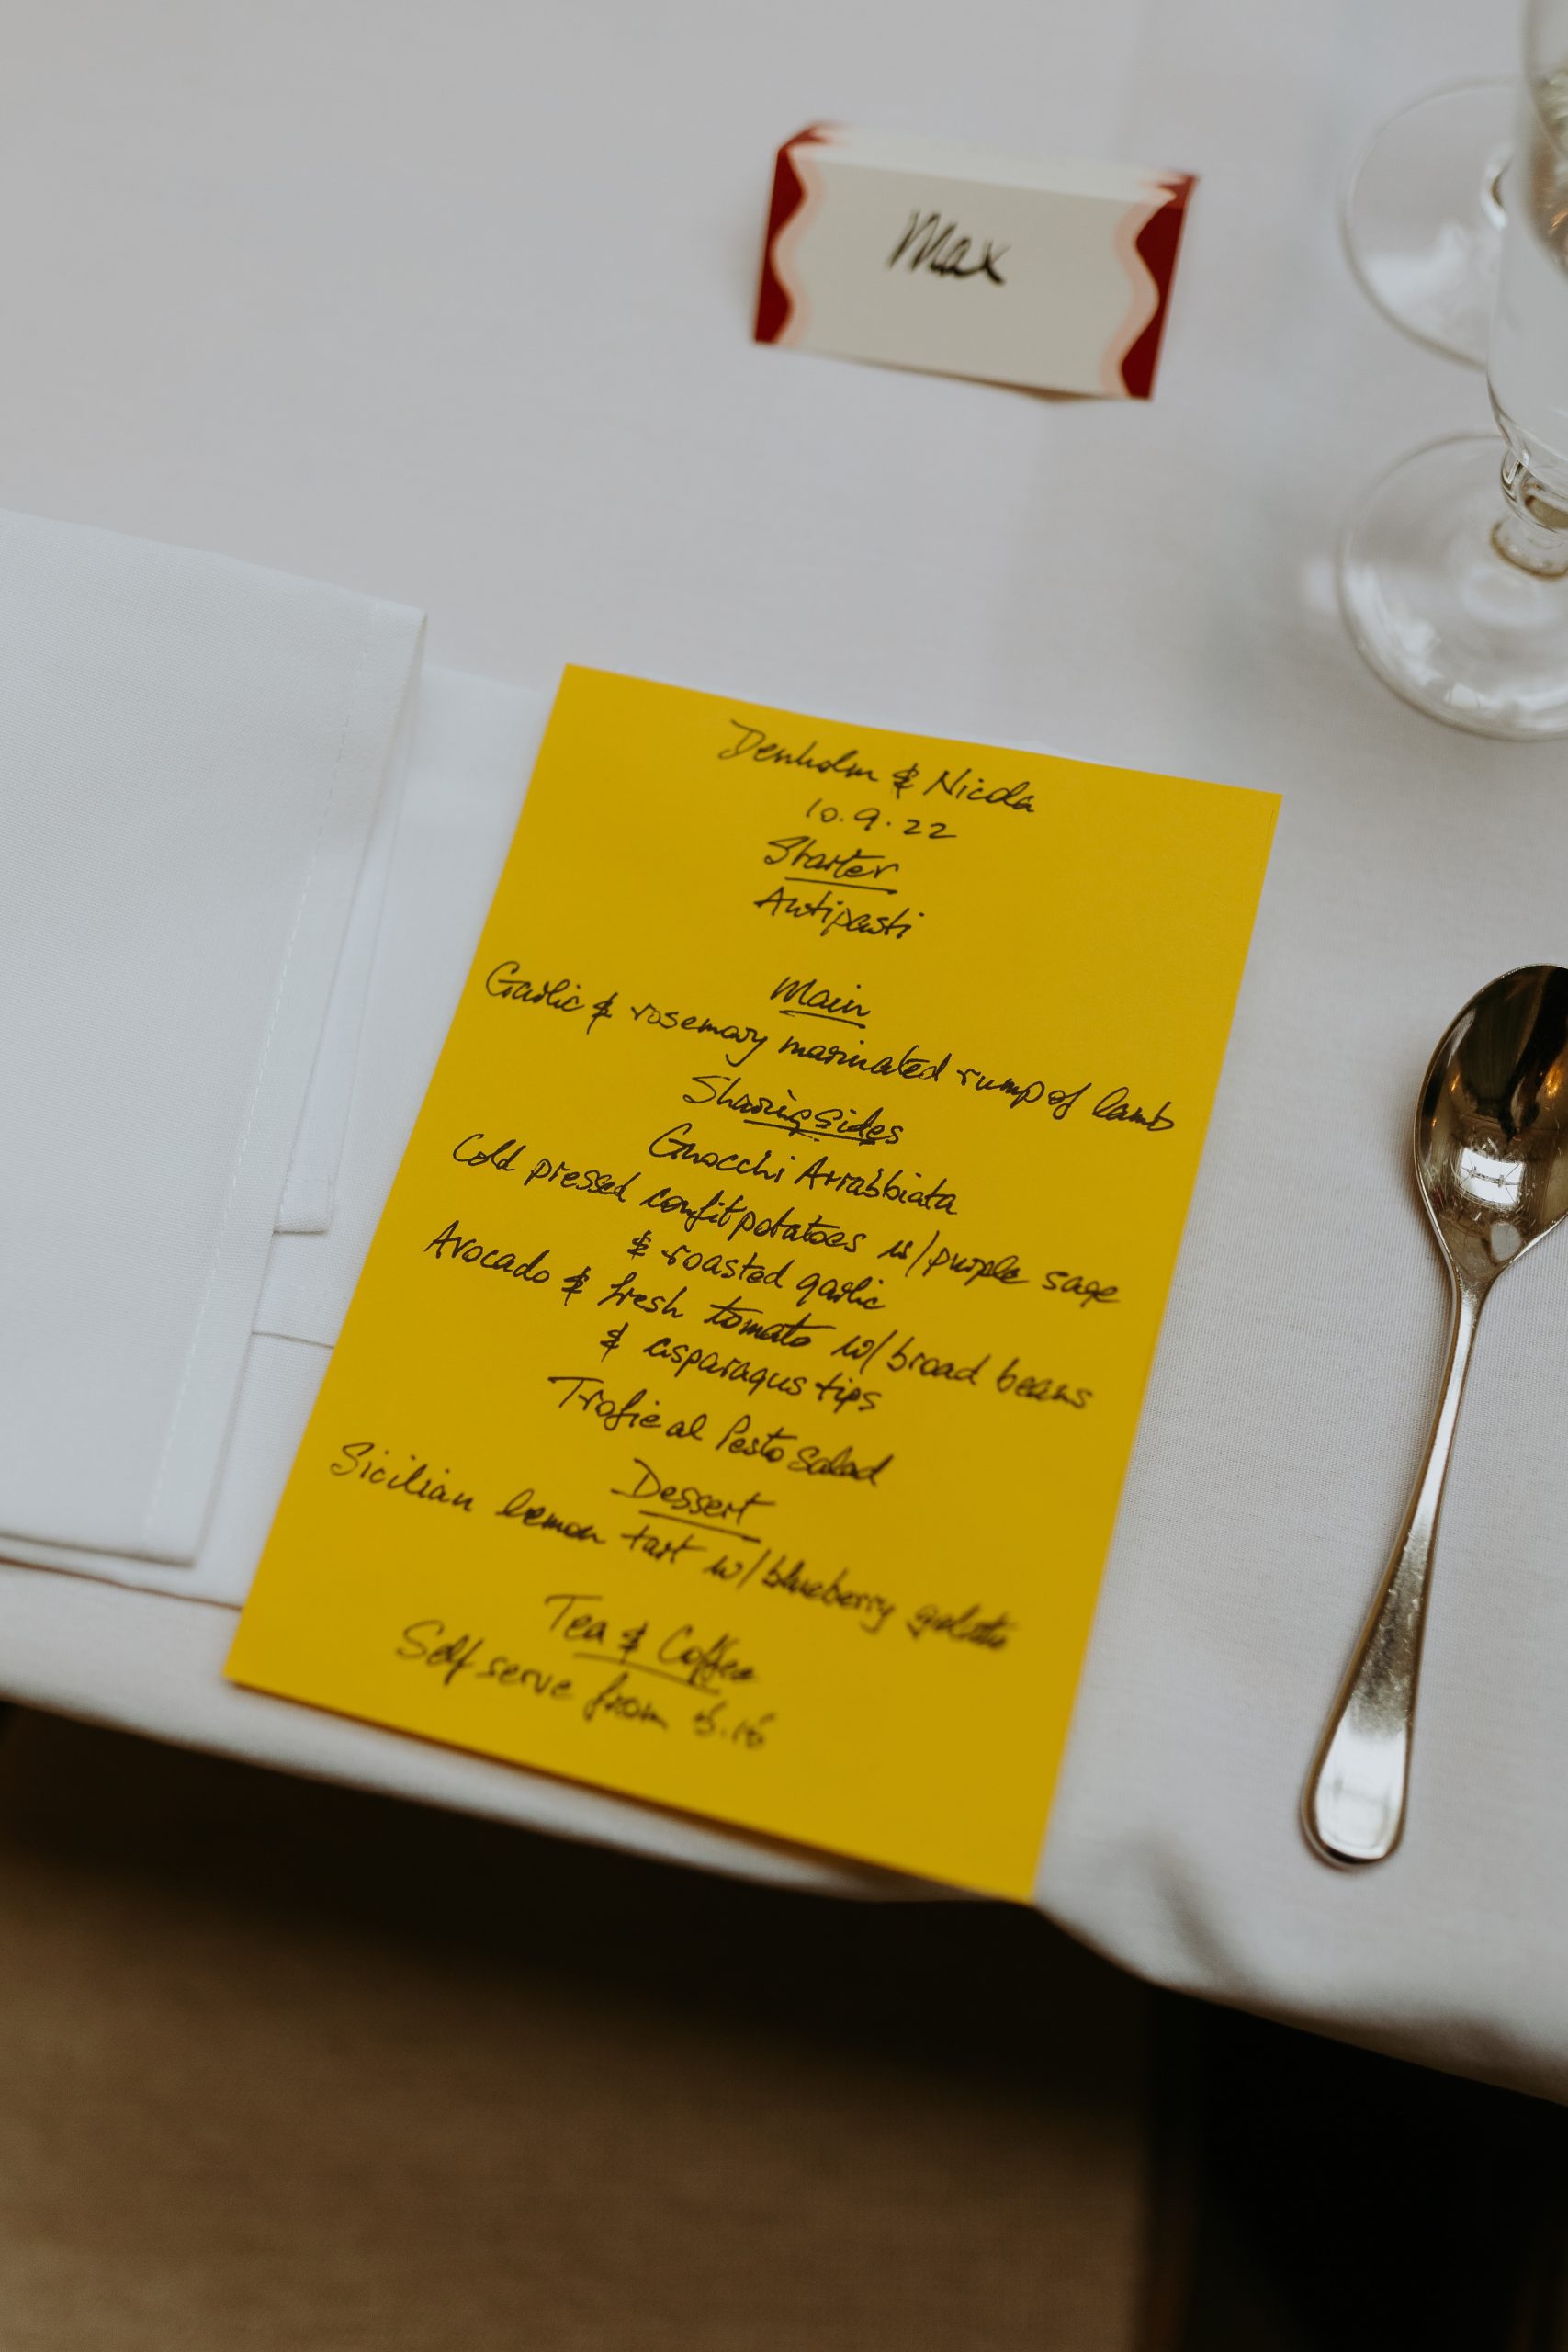 Max
Denholm & Nicola
10.9.22
Starter
Antipasti
Main
Garlic & rosemary marinated rump of lamb
Sharing Sides
Gnocchi Arrabbiata
Cold pressed confit potatoes w/ purple sage
& roasted garlic
Avocado & fresh tomato w/ broad beans
& asparagus tips
Trofie al Pesto Salad
Dessert
Sicilian lemon tart w/ blueberry gelato
Tea & Coffee
Self serve from